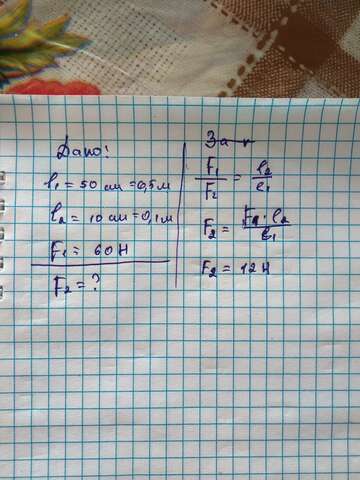 Дано!
l₁ = 50 см = 0,5 м
l₂ = 10 см = 0,1 м
F₁ = 60 Н
F₂ = ?
F₁/F₂ = l₂/l₁
F₂ = F₁·l₂/l₁
F₂ = 12 Н